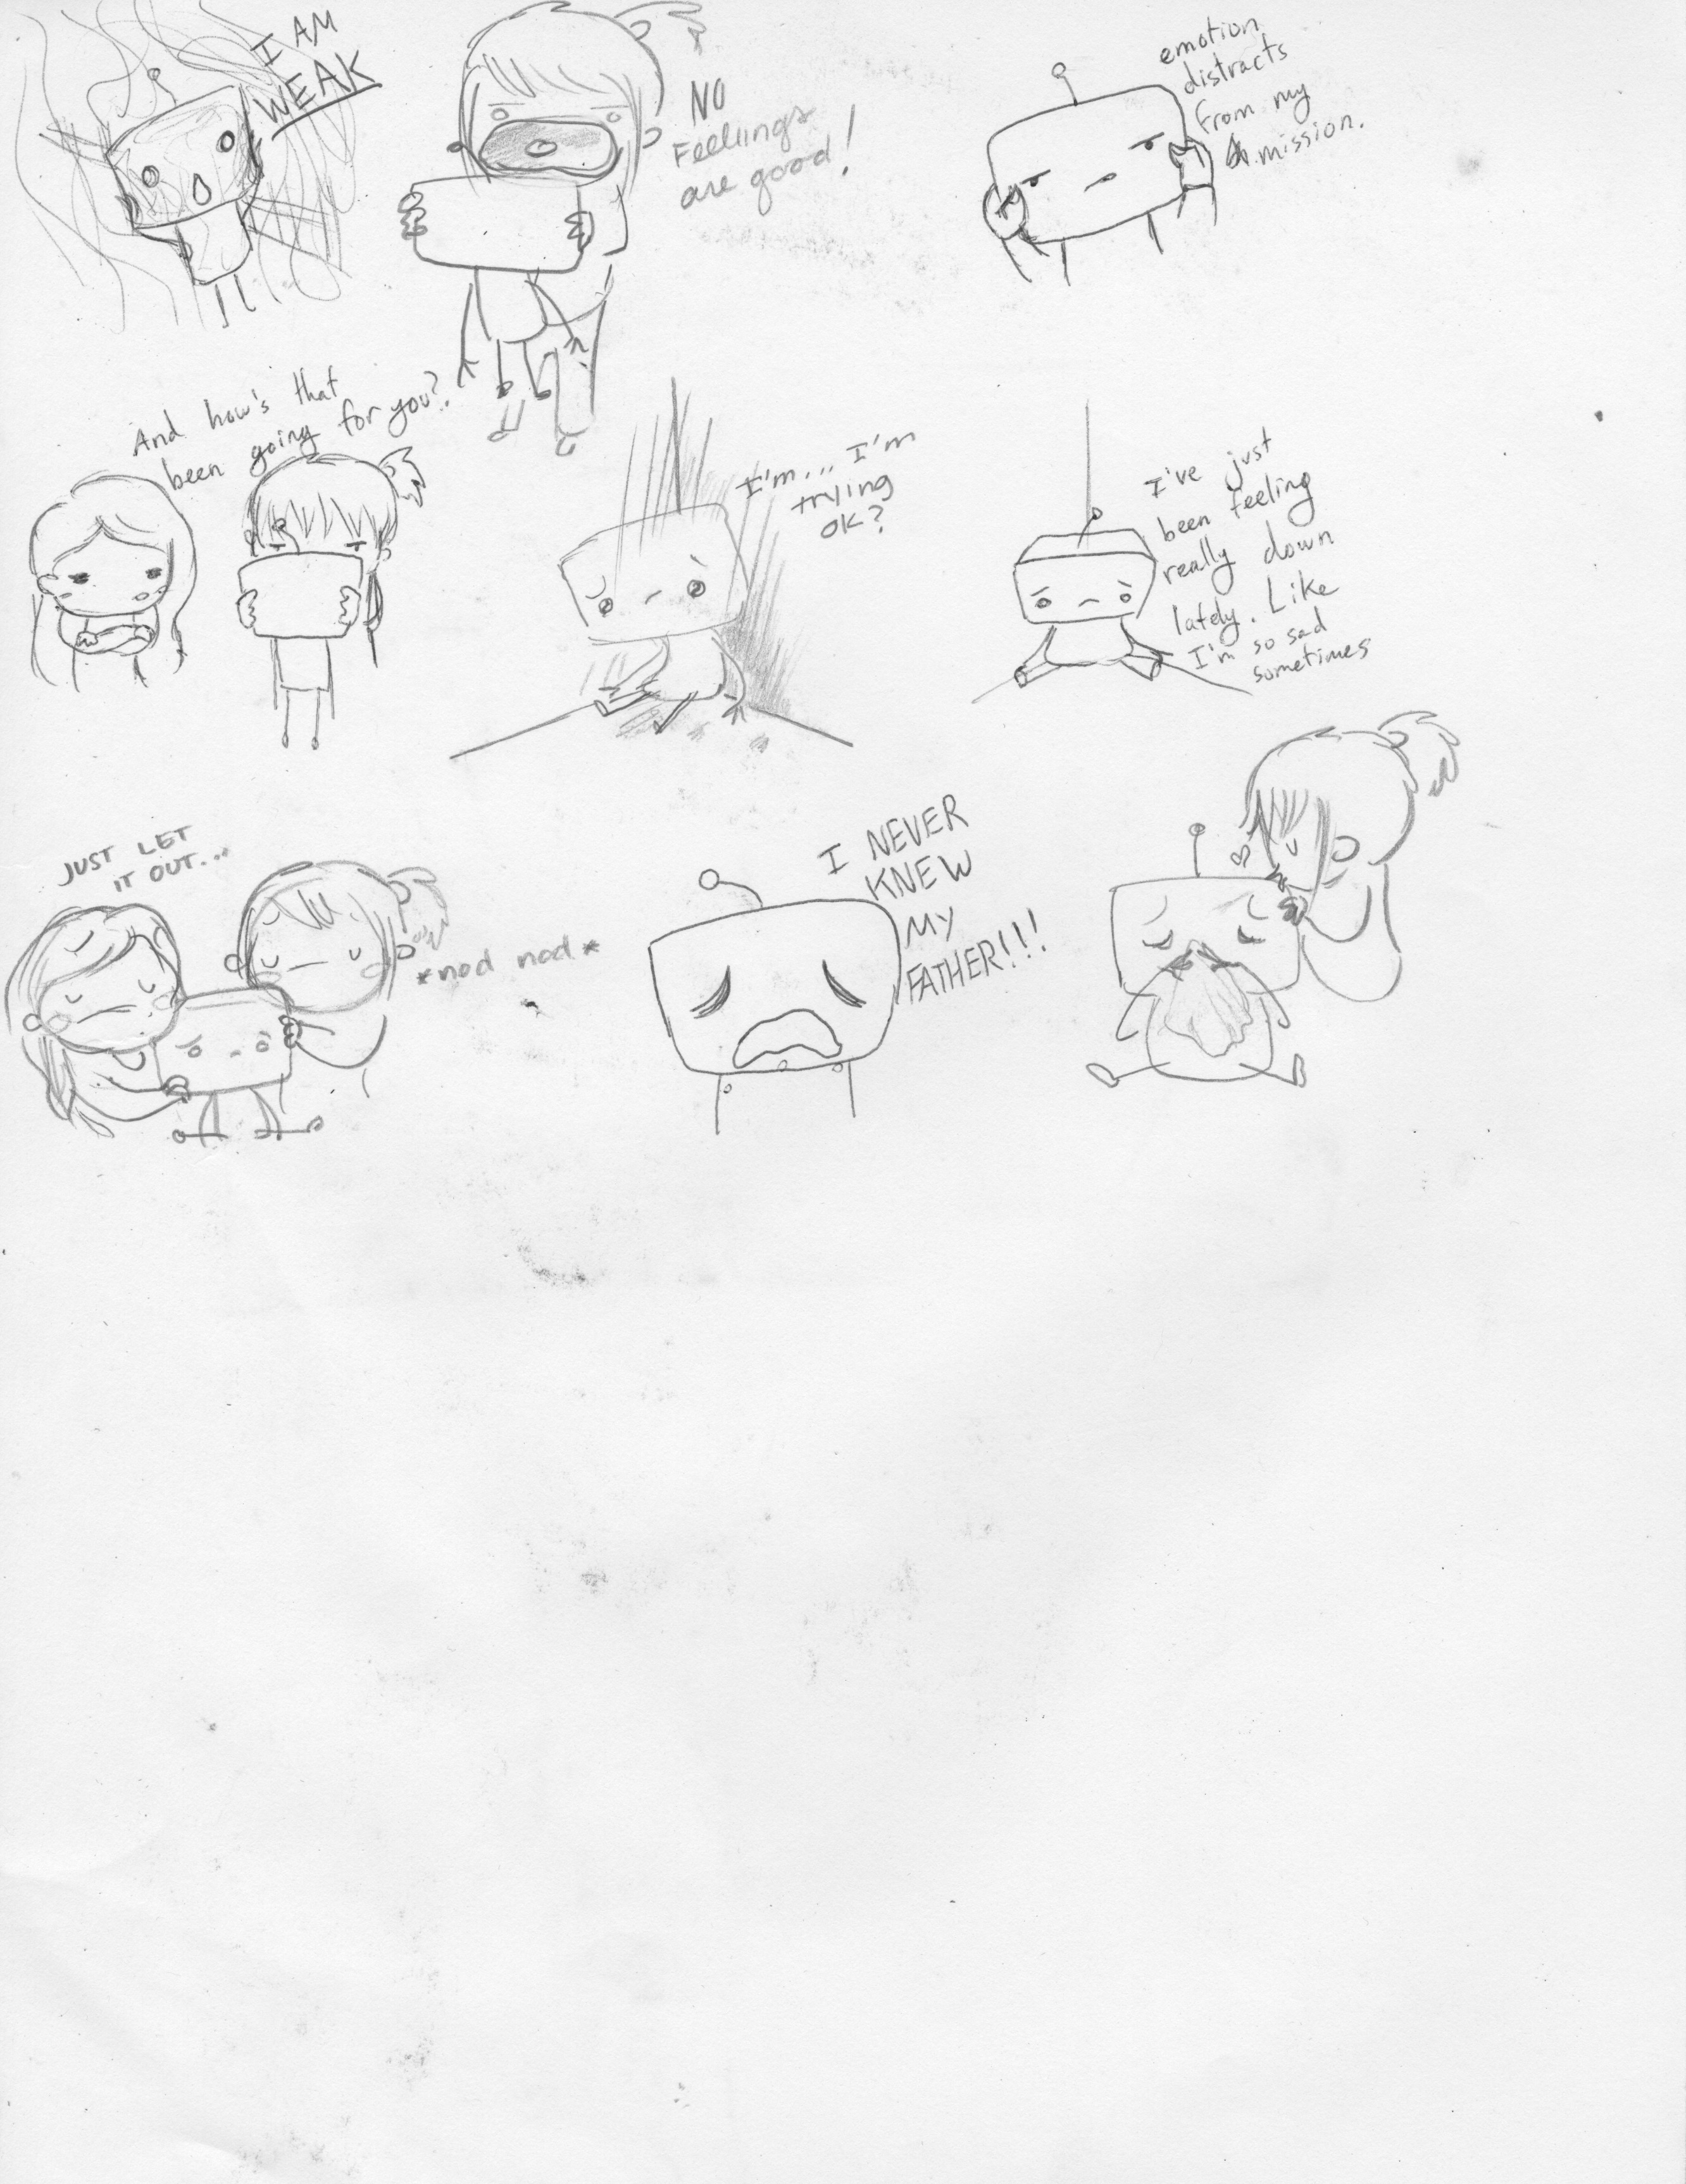 I AM
WEAK
NO
Feelings
are good!
emotion
distracts
from my
mission.
And how's that
been going for you?
I'm... I'm
trying
OK?
I've just
been feeling
really down
lately. Like
I'm so sad
sometimes
JUST LET
IT OUT...
*nod nod*
I NEVER
KNEW
MY
FATHER!!!